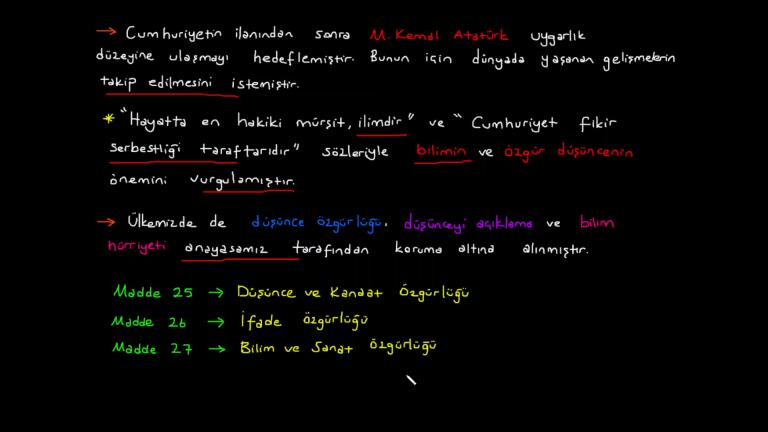 → Cumhuriyetin ilanından sonra M. Kemal Atatürk uygarlık
düzeyine ulaşmayı hedeflemiştir. Bunun için dünyada yaşanan gelişmelerin
takip edilmesini istemiştir.
* "Hayatta en hakiki mürşit, ilimdir" ve "Cumhuriyet fikir
serbestliği taraftarıdır" sözleriyle bilimin ve özgür düşüncenin
önemini vurgulamıştır.
→ Ülkemizde de düşünce özgürlüğü, düşünceyi açıklama ve bilim
hürriyeti anayasamız tarafından koruma altına alınmıştır.
Madde 25 → Düşünce ve Kanaat Özgürlüğü
Madde 26 → İfade özgürlüğü
Madde 27 → Bilim ve Sanat Özgürlüğü